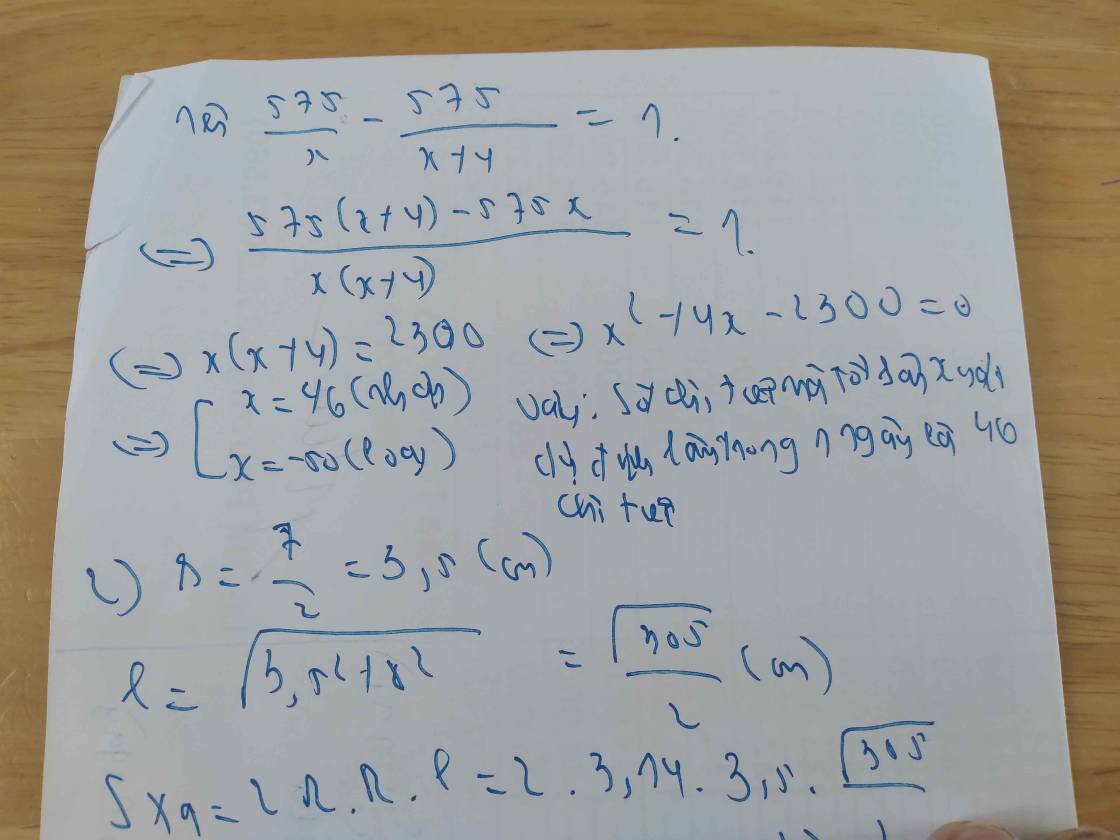 575/x - 575/x+4 = 1.
(=) 575(x+4) - 575x / x(x+4) = 1.
(=) x(x+4) = 2300 (=) x² + 4x - 2300 = 0
(=) [ x = 46 (nhận)
x = -50 (loại)
Vậy: Số chi tiết mà tổ sản xuất
dự định làm trong 1 ngày là 46
chi tiết
2) R = 7/2 = 3,5 (cm)
l = √3,5² + 8² = √305/2 (cm)
Sxq = 2 π . R . l = 2 . 3,14 . 3,5 . √305